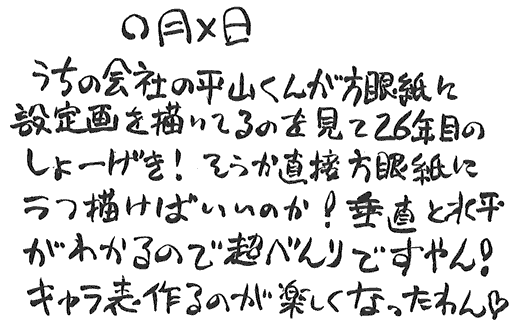 〇月×日
うちの会社の平山くんが方眼紙に
設定画を描いてるのを見て26年目の
しょーげき! そうか直接方眼紙に
うつ描けばいいのか! 垂直と水平
がわかるので超べんりですやん!
キャラ表作るのが楽しくなったわん♡